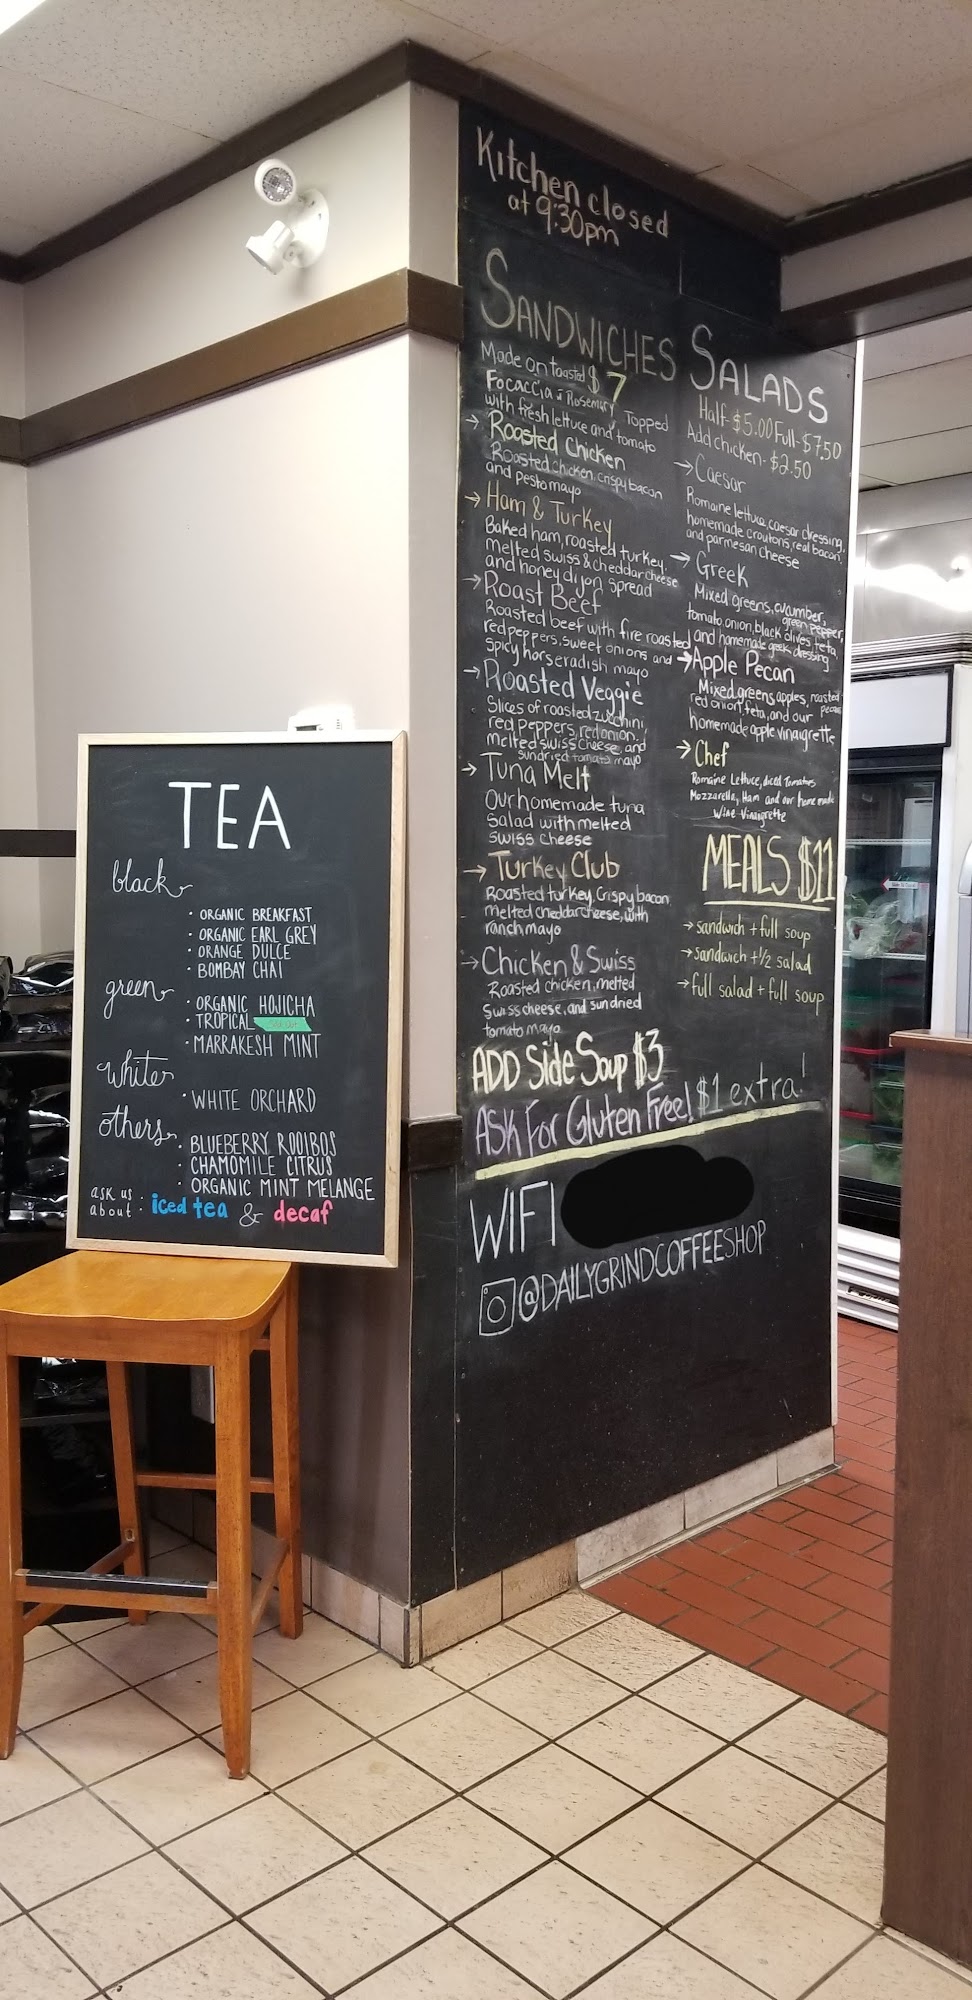 TEA
black
• ORGANIC BREAKFAST
• ORGANIC EARL GREY
• ORANGE DULCE
• BOMBAY CHAI
green
• ORGANIC HOJICHA
• TROPICAL
• MARRAKESH MINT
white
• WHITE ORCHARD
others
• BLUEBERRY ROOIBOS
• CHAMOMILE CITRUS
• ORGANIC MINT MELANGE
ask us about: iced tea & decaf
Kitchen closed
at 9:30pm
SANDWICHES
Made on toasted $7
Focaccia & Rosemary Topped
with fresh lettuce and tomato
→ Roasted Chicken
Roasted chicken, crispy bacon
and pesto mayo
→ Ham & Turkey
Baked ham, roasted turkey,
melted swiss & cheddar cheese
and honey dijon spread
→ Roast Beef
Roasted beef with fire roasted
red peppers, sweet onions and
spicy horseradish mayo
→ Roasted Veggie
Slices of roasted zucchini,
red peppers, red onion,
melted swiss cheese, and
sundried tomato mayo
→ Tuna Melt
Our homemade tuna
Salad with melted
swiss cheese
→ Turkey Club
Roasted turkey, Crispy bacon,
melted cheddar cheese, with
ranch mayo
→ Chicken & Swiss
Roasted chicken, melted
Swiss cheese, and sundried
tomato mayo
ADD Side Soup $3
ASK For Gluten Free! $1 extra!
SALADS
Half-$5.00 Full-$7.50
Add chicken-$2.50
→ Caesar
Romaine lettuce, caesar dressing,
homemade croutons, real bacon,
and parmesan cheese
→ Greek
Mixed greens, cucumber,
tomato, onion, black olives, green pepper, feta,
and homemade greek dressing
→ Apple Pecan
Mixed greens, apples, roasted pecans
red onion, feta, and our
homemade apple vinaigrette
→ Chef
Romaine Lettuce, diced Tomatoes
Mozzarella, Ham and our home made
Wine Vinaigrette
MEALS $11
→ sandwich + full soup
→ sandwich + 1/2 salad
→ full salad + full soup
WIFI
@DAILYGRINDCOFFEESHOP